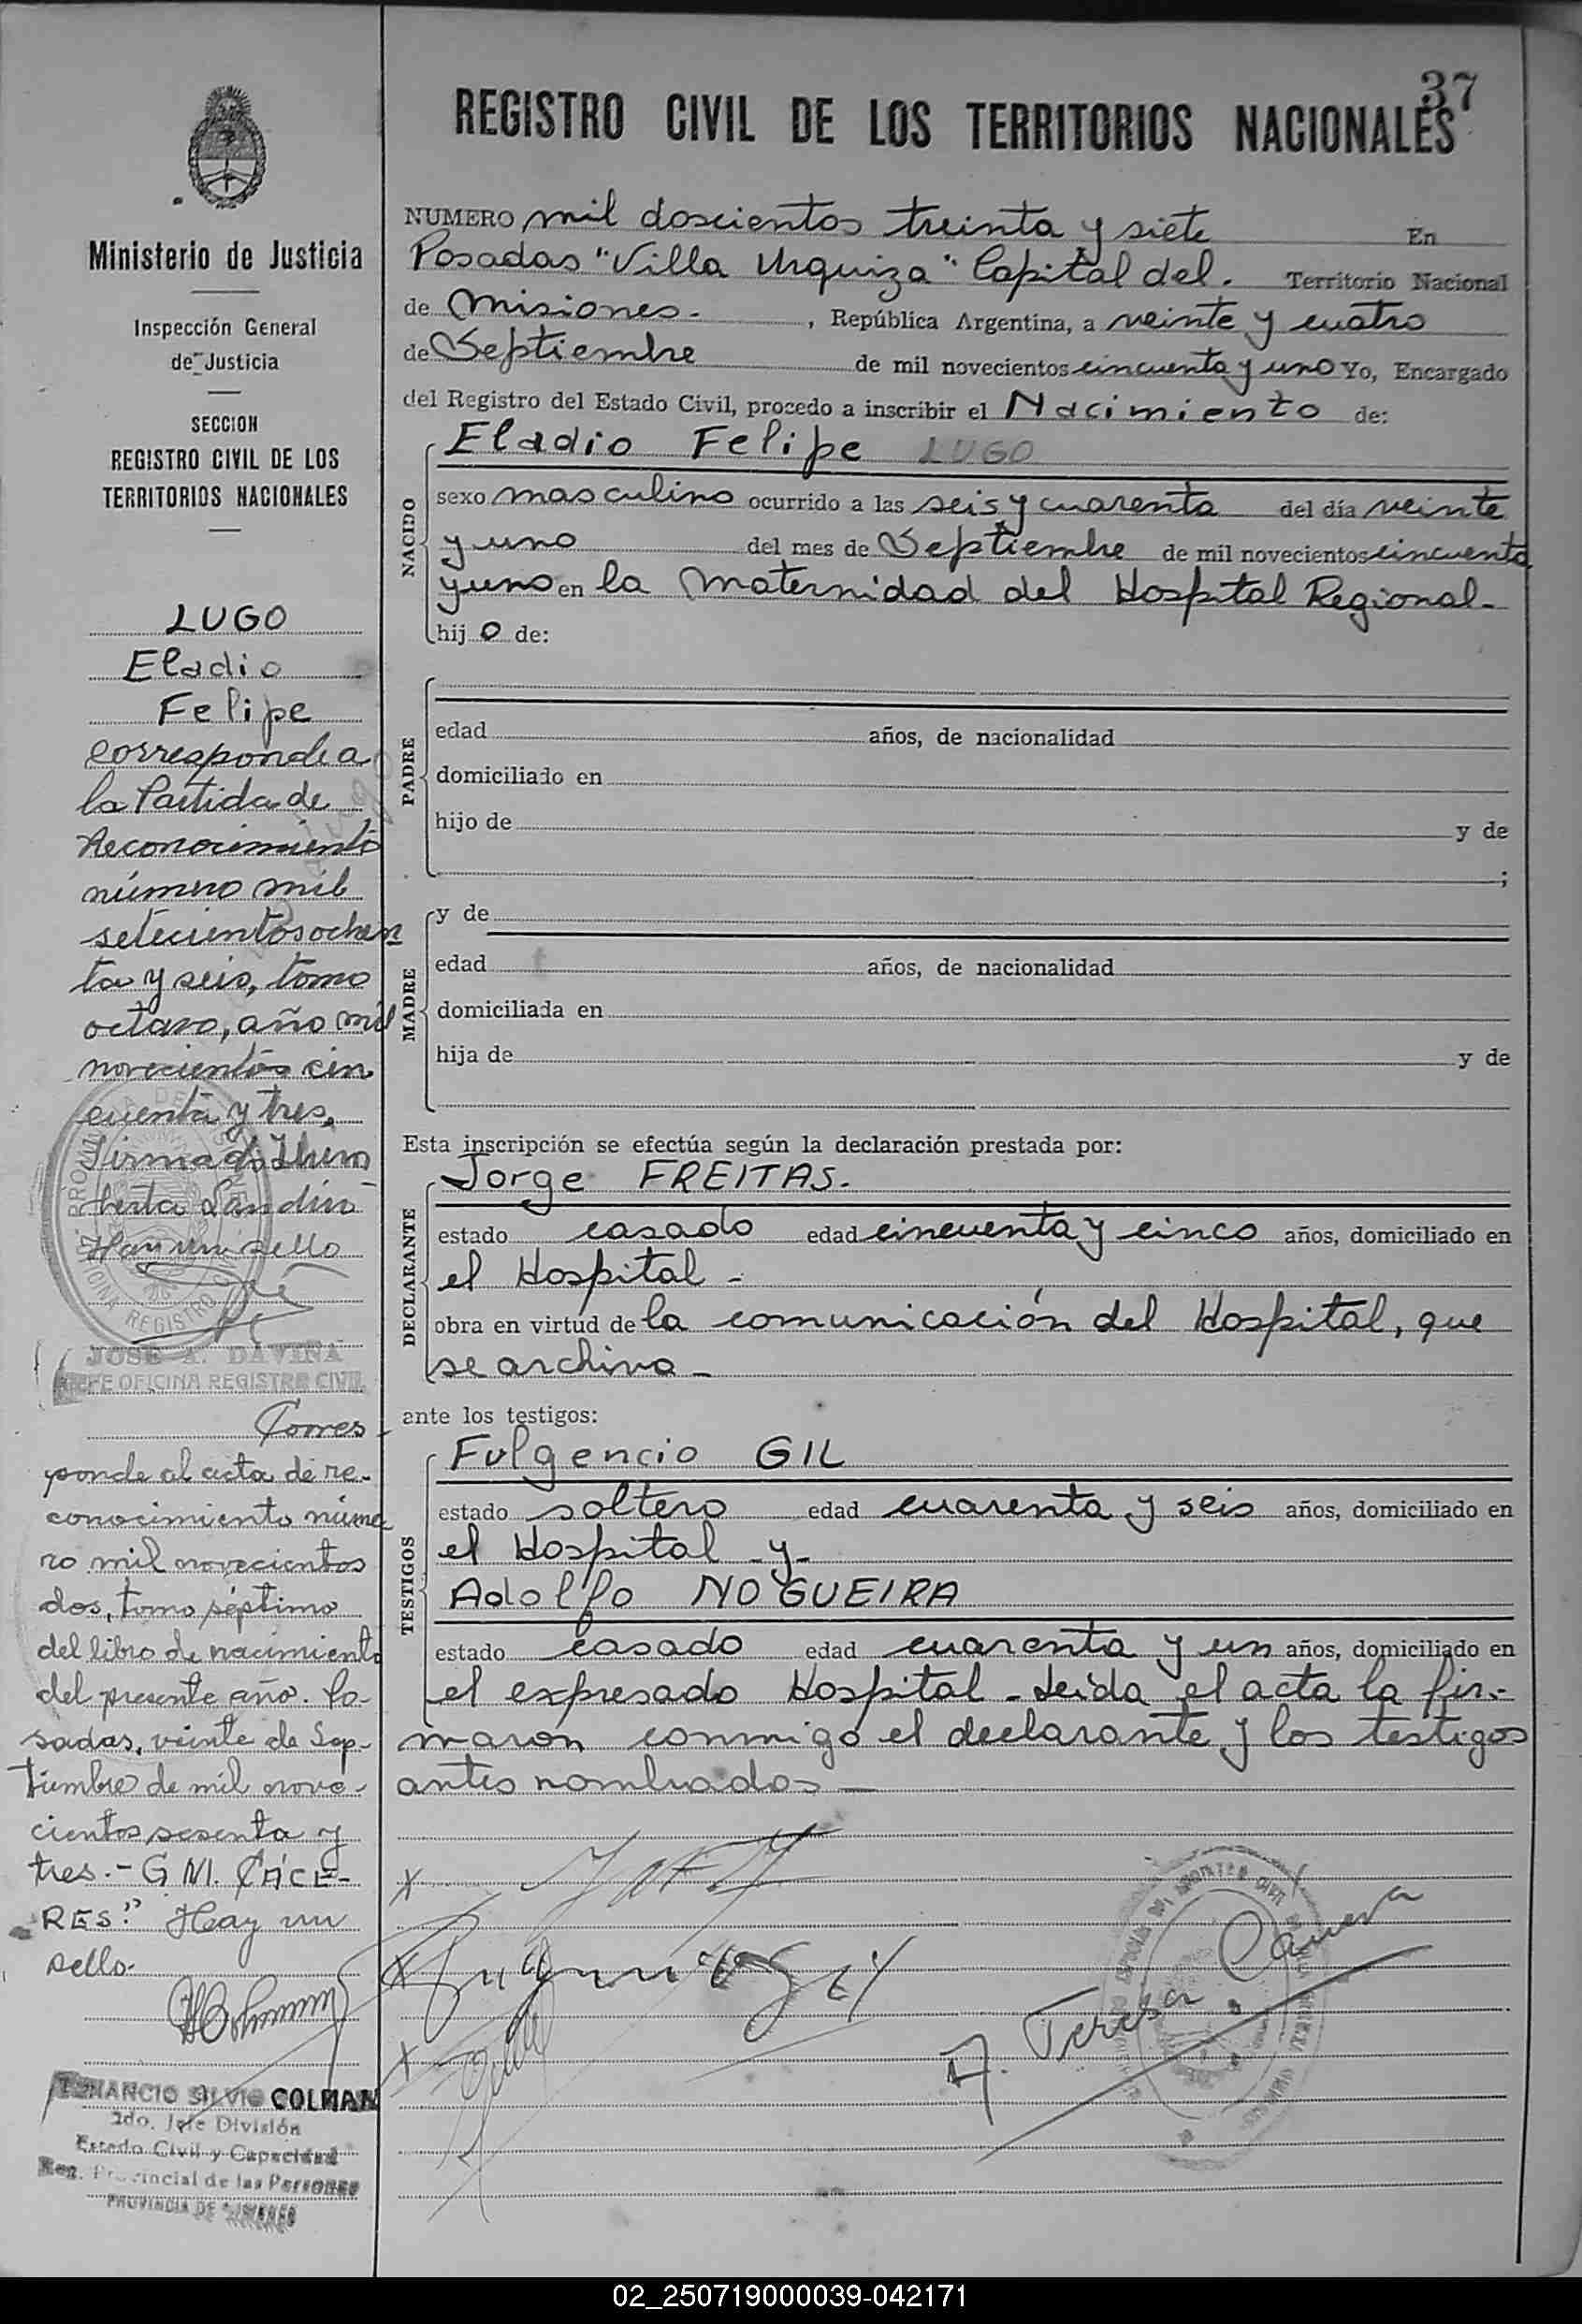 37
REGISTRO CIVIL DE LOS TERRITORIOS NACIONALES
Ministerio de Justicia
Inspección General
de Justicia
SECCION
REGISTRO CIVIL DE LOS
TERRITORIOS NACIONALES
LUGO
Eladio
Felipe
corresponde a
la Partida de
Reconocimiento
número mil
setecientos ochen
ta y seis, tomo
octavo, año mil
novecientos cin
cuenta y tres,
Firmado:
Hay un sello
JOSE A. DAVIÑA
JEFE OFICINA REGISTRO CIVIL
Corres-
ponde al acta de re-
conocimiento núme
ro mil novecientos
dos, tomo séptimo
del libro de nacimiento
del presente año. Po-
sadas, veinte de Sep-
tiembre de mil nove-
cientos sesenta y
tres.- G.M. CÁCE-
RES." Hay un
sello-
SILVIO COLMAN
2do. Jefe División
Estado Civil y Capacidad
Reg. Provincial de las Personas
PROVINCIA DE MISIONES
NUMERO mil doscientos treinta y siete En
Posadas "Villa Urquiza" Capital del. Territorio Nacional
de Misiones.- , República Argentina, a veinte y cuatro
de Septiembre de mil novecientos cincuenta y uno Yo, Encargado
del Registro del Estado Civil, procedo a inscribir el Nacimiento de:
Eladio Felipe LUGO
NACIDO
sexo masculino ocurrido a las seis y cuarenta del día veinte
y uno del mes de Septiembre de mil novecientos cincuenta
y uno en la Maternidad del Hospital Regional-
hijo de:
PADRE
edad años, de nacionalidad
domiciliado en
hijo de y de
;
MADRE
y de
edad años, de nacionalidad
domiciliada en
hija de y de
Esta inscripción se efectúa según la declaración prestada por:
DECLARANTE
Jorge FREITAS.
estado casado edad cincuenta y cinco años, domiciliado en
el Hospital -
obra en virtud de la comunicación del Hospital, que
se archiva -
ante los testigos:
TESTIGOS
Fulgencio GIL
estado soltero edad cuarenta y seis años, domiciliado en
el Hospital -y-
Adolfo NOGUEIRA
estado casado edad cuarenta y un años, domiciliado en
el expresado Hospital - Leida el acta la fir-
maron conmigo el declarante y los testigos
antes nombrados -
A. Teresa Canesa
02_250719000039-042171